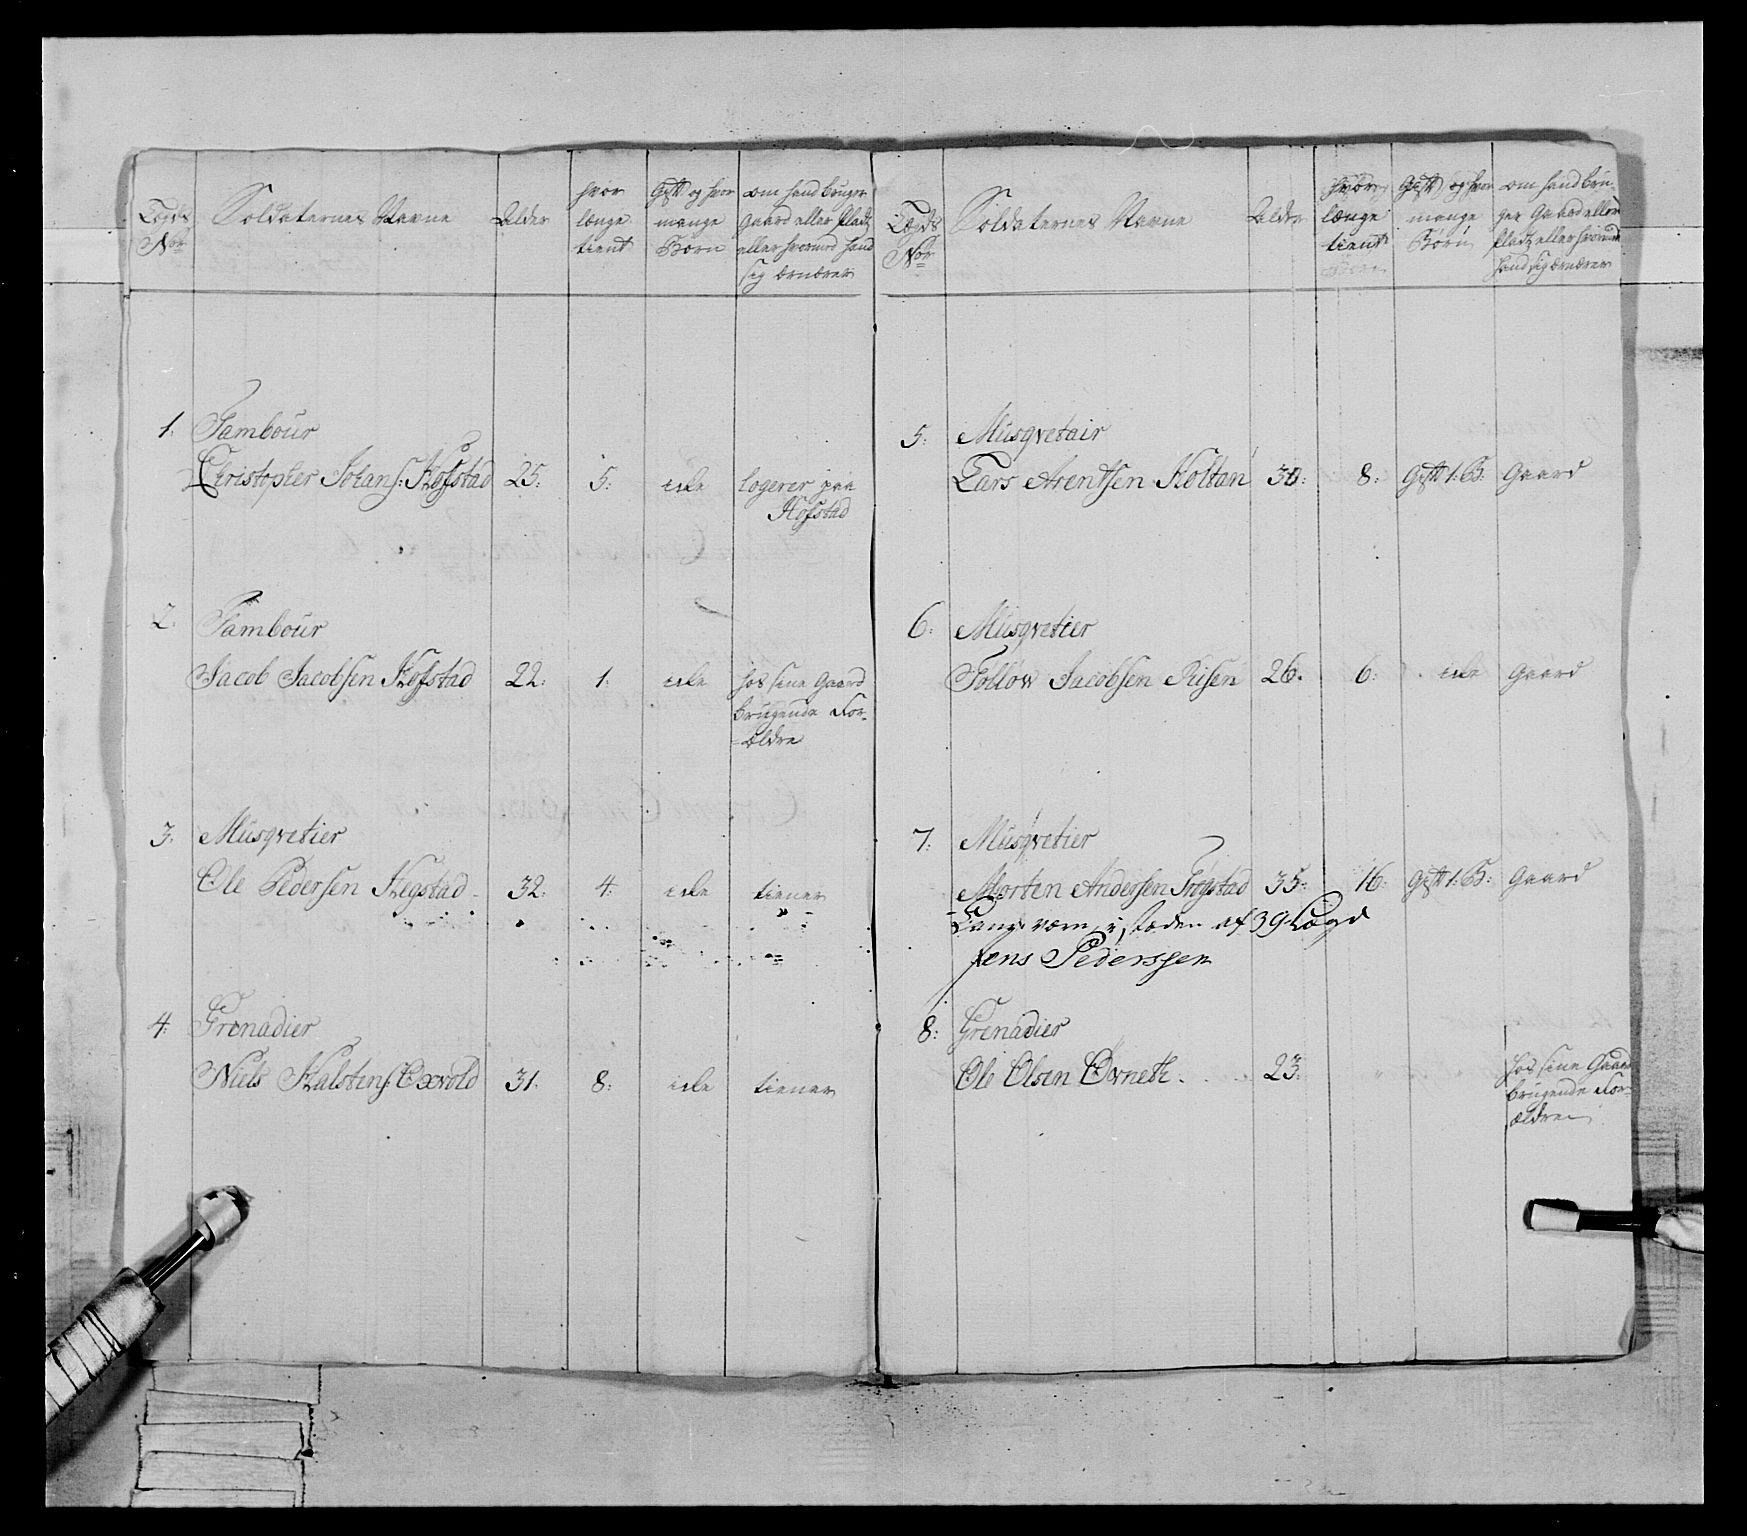 Lægds
Nor
Soldaternes Navne
Alder
hvor
længe
tient
Gift og hvor
mange
Børn
om hand bruger
Gaard eller Pladtz
eller hvormed hand
sig ærnærer
1. Tambour
Christopher Johans: Hofstad 25: 5: icke logerer paa
Hofstad
2. Tambour
Jacob Jacobsen Hofstad 22: 1: icke hos sine Gaard
brugende For-
=ældre
3. Musqvetier
Ole Pedersen Hegstad 32: 4: icke tiener
4: Grenadier
Niels Halstens: Oxvold 31: 8: icke tiener
Lægds
Nor
Soldaternes Navne
Alder
hvor
længe
tient
Gift og hvor
mange
Børn
om hand bru-
ger Gaard eller
Pladtz eller hvormed
hand sig ærnærer
5: Musqvetair
Lars Arentsen Holtan 30: 8: Gift 1: B: Gaard
6: Musqvetier
Jacobsen Risen 26. 6: icke Gaard
7: Musqvetier
Morten Andersen Frøgstad 35: 16: Gift 1: B: Gaard
Land værn i steden af 39 Lægd
Jens Pederssen
8: Grenadier
Ole Olsen Øvneth. 23: hos sine Gaard
brugende For-
ældre